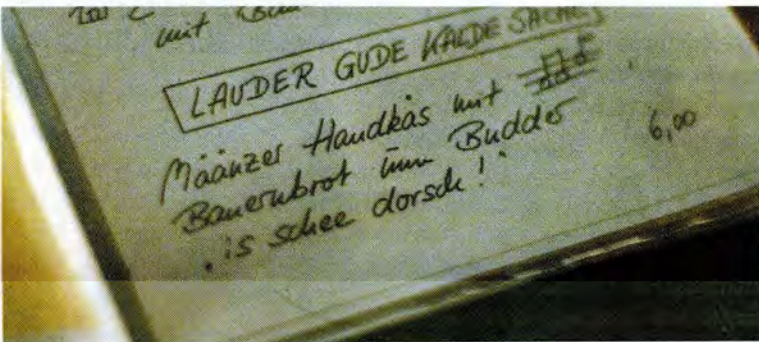 mit
LAUDER GUDE KALDE SACHE
Määnzer Handkäs mit
Bauernbrot unn Budder 6,00
. is schee dorsch!